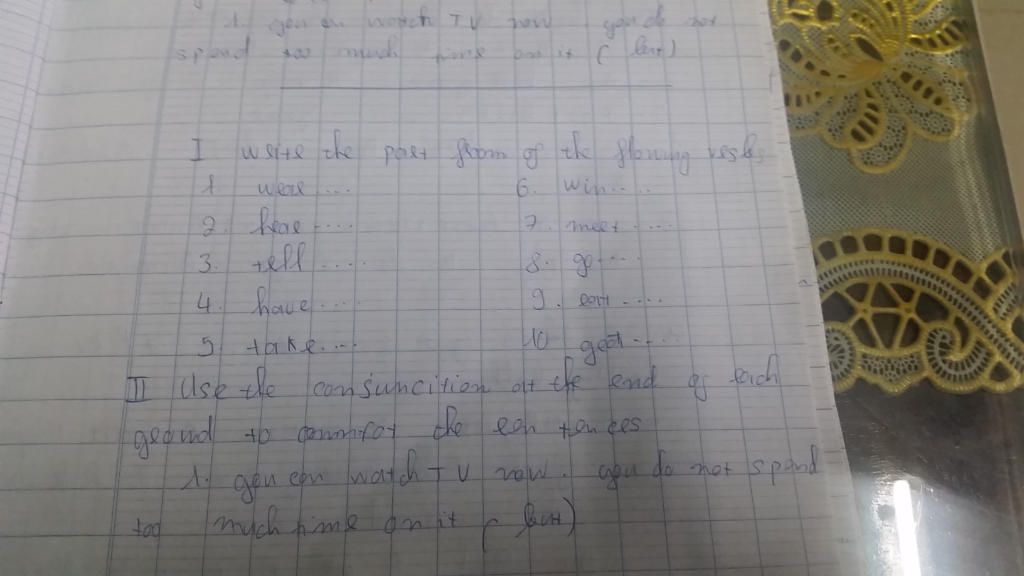 1. you can watch TV now you do not
spend too much time on it ( but )
I write the past from of the flowing verbs
1. wear .... 6. win ....
2. hear .... 7. meet ....
3. tell .... 8. go ....
4. have .... 9. eat ....
5 take .... 10 get ....
II Use the conjuncition at the end of each
to the
1. you can watch TV now. you do not spend
too much time on it ( but )